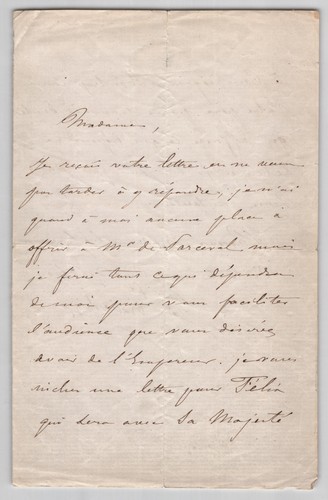 Madame,
Je reçois votre lettre et ne veux
pas tarder à y répondre, je n'ai
quand à moi aucune place à
offrir à Mr de Parceval mais
je ferai tous ce qui dépendra
de moi pour vous faciliter
l'audience que vous désirez
avoir de l'Empereur. je vous
une lettre pour Félix
qui sera avec Sa Majesté